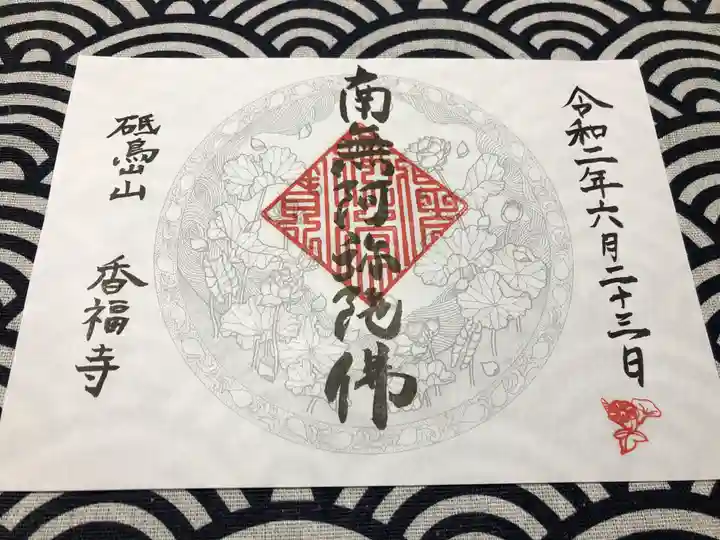 令和二年六月二十三日
南無阿弥陀佛
砥嶌山 香福寺